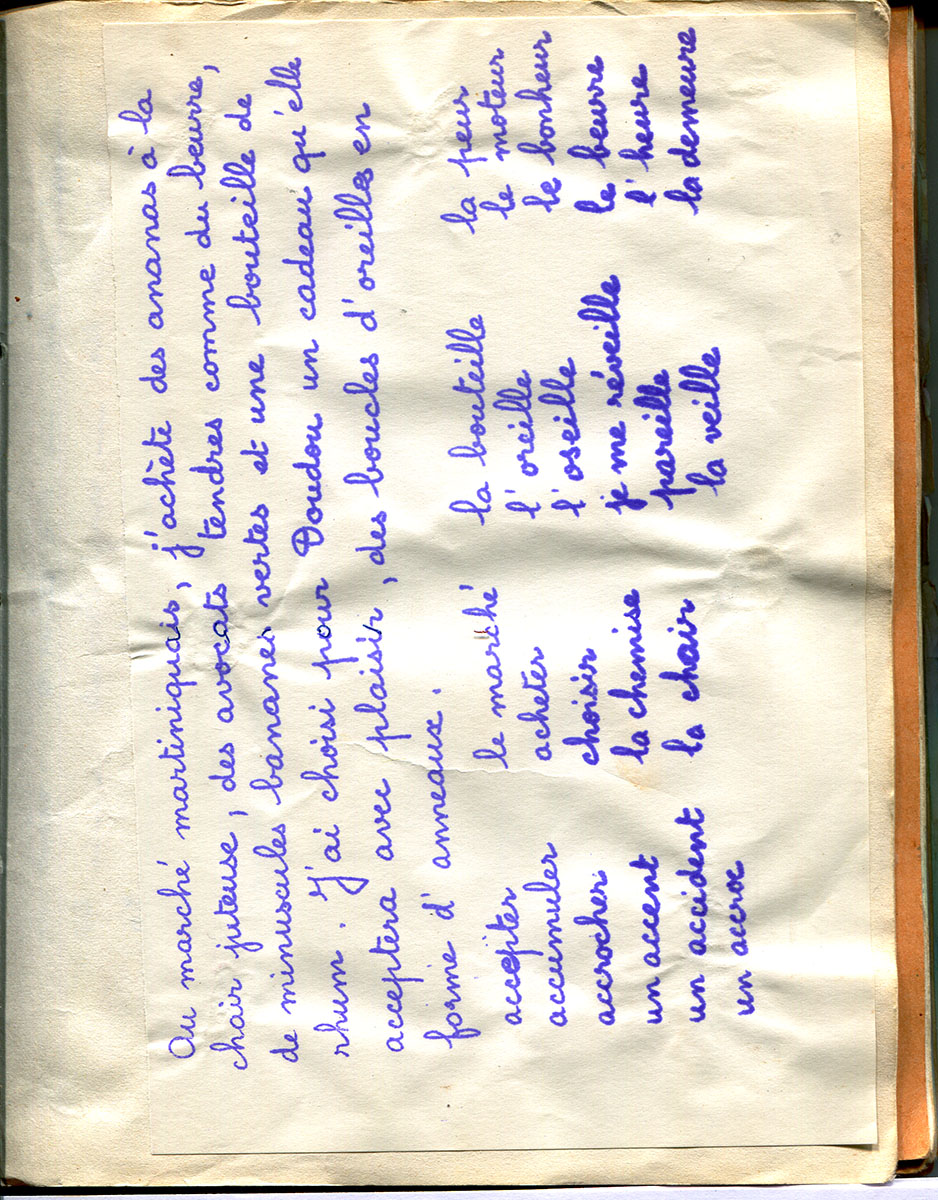 Au marché martiniquais, j'achète des ananas à la
chair juteuse, des avocats tendres comme du beurre,
de minuscules bananes vertes et une bouteille de
rhum. J'ai choisi pour Doudou un cadeau qu'elle
acceptera avec plaisir, des boucles d'oreilles en
forme d'anneaux.
accepter le marché la bouteille la peur
accumuler acheter l'oreille le moteur
accrocher choisir l'oseille le bonheur
un accent la chemise je me réveille le beurre
un accident la chair pareille l'heure
un accroc la veille la demeure